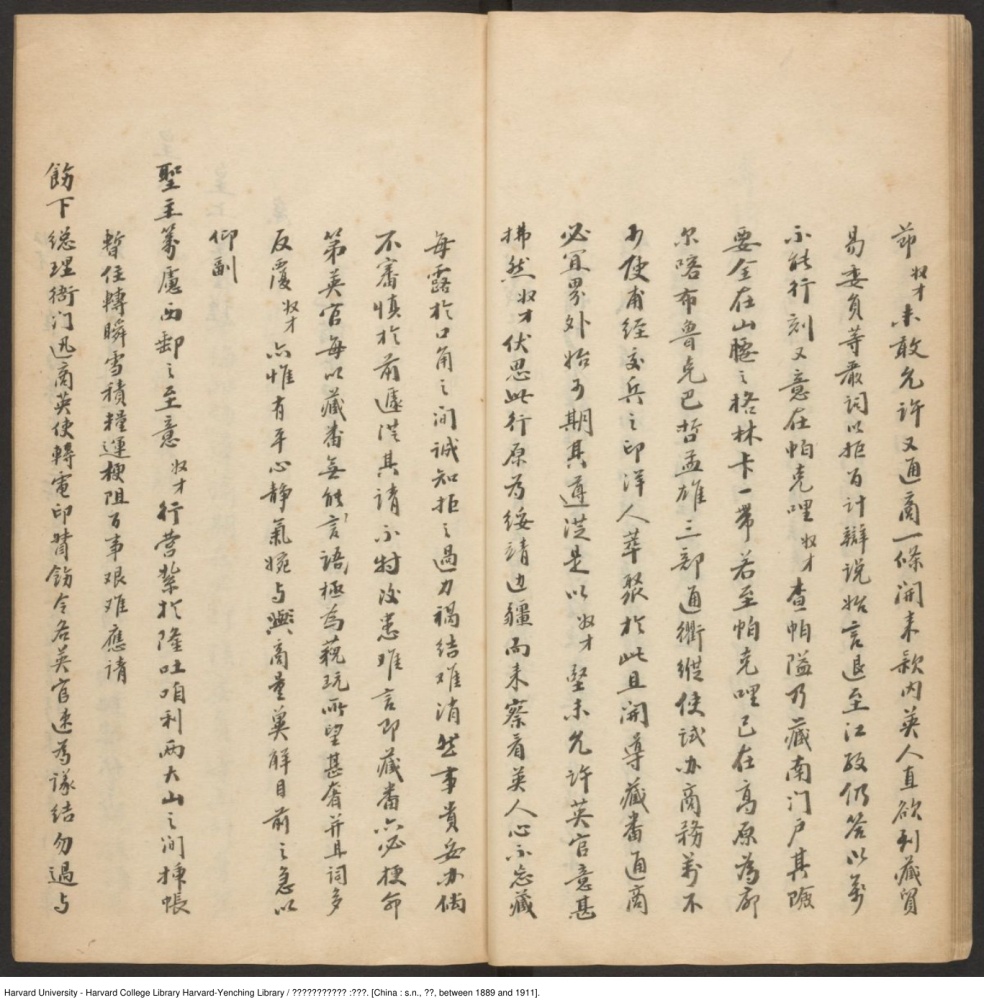 節奴才未敢允許又通商一條開來款內英人直欲到藏貿
易委員等嚴詞以拒百計辯說始言退至江孜仍答以萬
不能行刻又意在帕克哩奴才查帕隘乃藏南门户其險
要全在山腰之格林卡一帶若至帕克哩已在高原為廓
尔喀布魯克巴哲孟雄三部通衢縱使試办商務萬不
可使甫經交兵之印洋人萃聚於此且開導藏番通商
必宜界外始可期其遵從是以奴才堅未允許英官意甚
拂然奴才伏思此行原為綏靖边疆而來察看英人心不忘藏
每露於口角之间誠知拒之過力禍结难消然事貴妥办倘
不審慎於前遽從其請不特後患难言即藏番亦必梗命
第英官每以藏番無能言語極為藐玩所望甚奢并且詞多
反覆奴才亦惟有平心靜氣婉与興商量冀解目前之急以
仰副
聖主籌慮西郵之至意奴才行营紮於隆吐咱利兩大山之间揀帳
暫住轉瞬雪積糧運梗阻百事艰难應請
飭下總理衙门迅商英使轉電印督飭令各英官速為議结勿過与